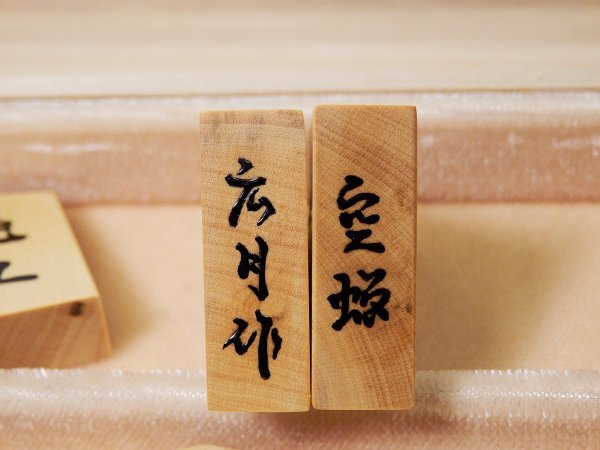 空蝉
広月作